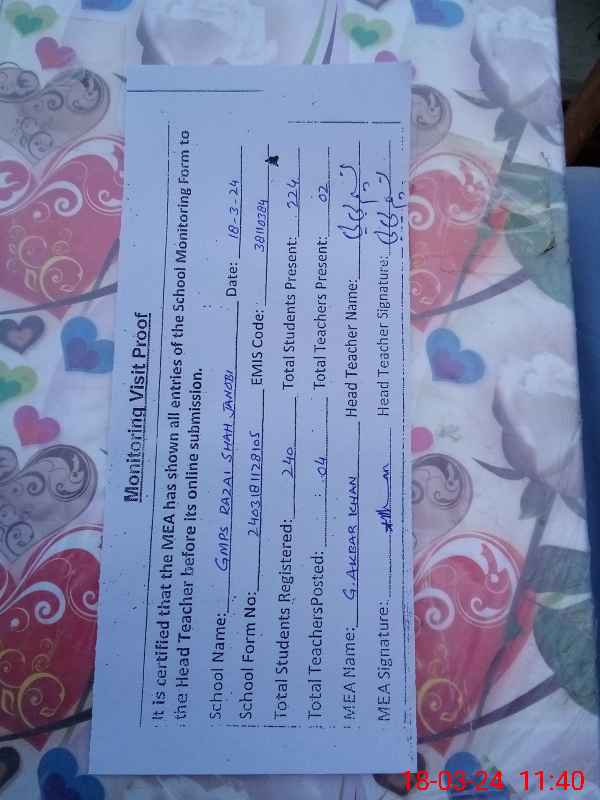 Monitoring Visit Proof
It is certified that the MEA has shown all entries of the School Monitoring Form to
the Head Teacher before its online submission.
School Name: GMPS RAZAI SHAH JANOBI Date: 18-3-24
School Form No: 24031811128105 EMIS Code: 38110384
Total Students Registered: 240 Total Students Present: 224
Total TeachersPosted: 04 Total Teachers Present: 02
MEA Name: G.AKBAR KHAN Head Teacher Name:
MEA Signature: Head Teacher Signature:
18-03-24 11:40